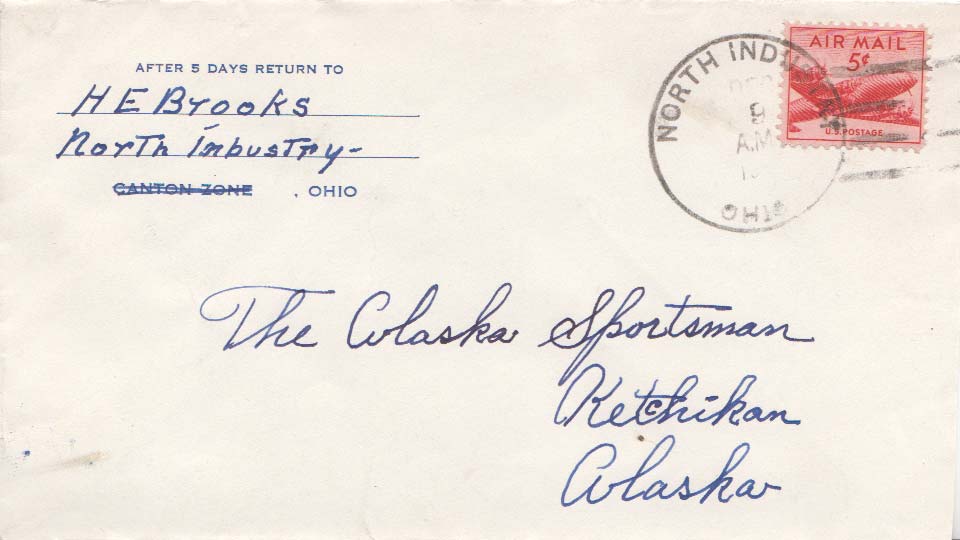 AFTER 5 DAYS RETURN TO
H E Brooks
North Industry-
CANTON ZONE , OHIO
NORTH INDUSTRY
DEC
9
A.M.
OHIO
AIR MAIL
5¢
U.S. POSTAGE
The Alaska Sportsman
Ketchikan
Alaska